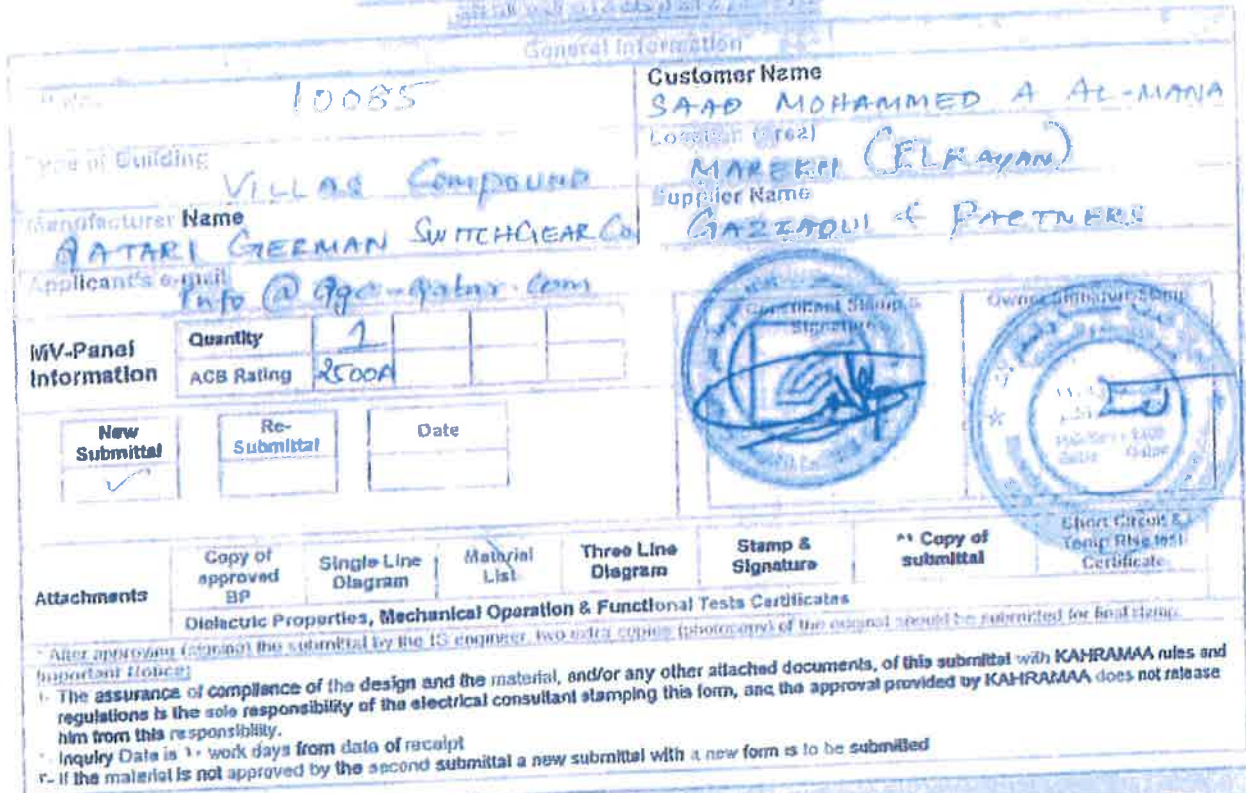 General Information
10085
Customer Name
SAAD MOHAMMED A AL-MANA
Type of Building
VILLAS COMPOUND
Location (Area)
MAREKH (ELRAYAN)
Manufacturer Name
QATARI GERMAN SWITCHGEAR Co
Supplier Name
GAZZAOUI & PARTNERS
Applicant's e-mail
Info @ qgs-qatar.com
MV-Panel Information
Quantity 1
ACB Rating 2500A
Consultant Stamp & Signature
Owner Signature/Stamp
New Submittal
Re-Submittal
Date
✓
Attachments
Copy of approved BP
Single Line Diagram
Material List
Three Line Diagram
Stamp & Signature
** Copy of submittal
Short Circuit & Temp Rise test Certificate
Dielectric Properties, Mechanical Operation & Functional Tests Certificates
* After approving (signing) the submittal by the IS engineer, two extra copies (photocopy) of the original should be submitted for final stamp.
Important Notice:
The assurance of compliance of the design and the material, and/or any other attached documents, of this submittal with KAHRAMAA rules and
regulations is the sole responsibility of the electrical consultant stamping this form, and the approval provided by KAHRAMAA does not release
him from this responsibility.
Inquiry Date is work days from date of receipt
If the material is not approved by the second submittal a new submittal with a new form is to be submitted